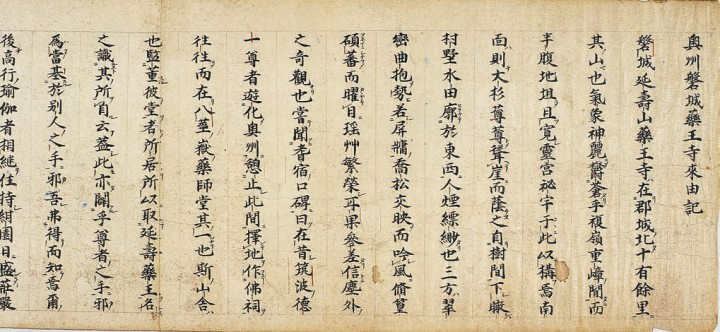 奥州磐城藥王寺來由記
磐城延壽山藥王寺在郡城北十有餘里
其山也氣象神麗欝蒼乎複嶺重嶂間而
半腹地坦且寛靈宮祕宇于此以構焉南
面則大杉蓴蓴聳崖而蔭之自樹間下瞰
村墅水由廓於東西人煙縹緲也三方翠
巒曲抱勢若屏牆喬松交映而吟風脩篁
碩蕃而曜目瑶艸繁榮耳果參差信塵外
之奇觀也嘗聞耆宿口碑曰在昔筑波德
一尊者遊化奥州憩止此間擇地作佛祠
往往而在八莖嶽藥師堂其一也斯山舎
也監董彼堂者所居所以取延壽藥王名
之識其所自云葢此亦闢乎尊者之手邪
為當基於別人之手邪吾弗得而知焉爾
後高行瑜伽者相繼住持紺園日盛莊嚴